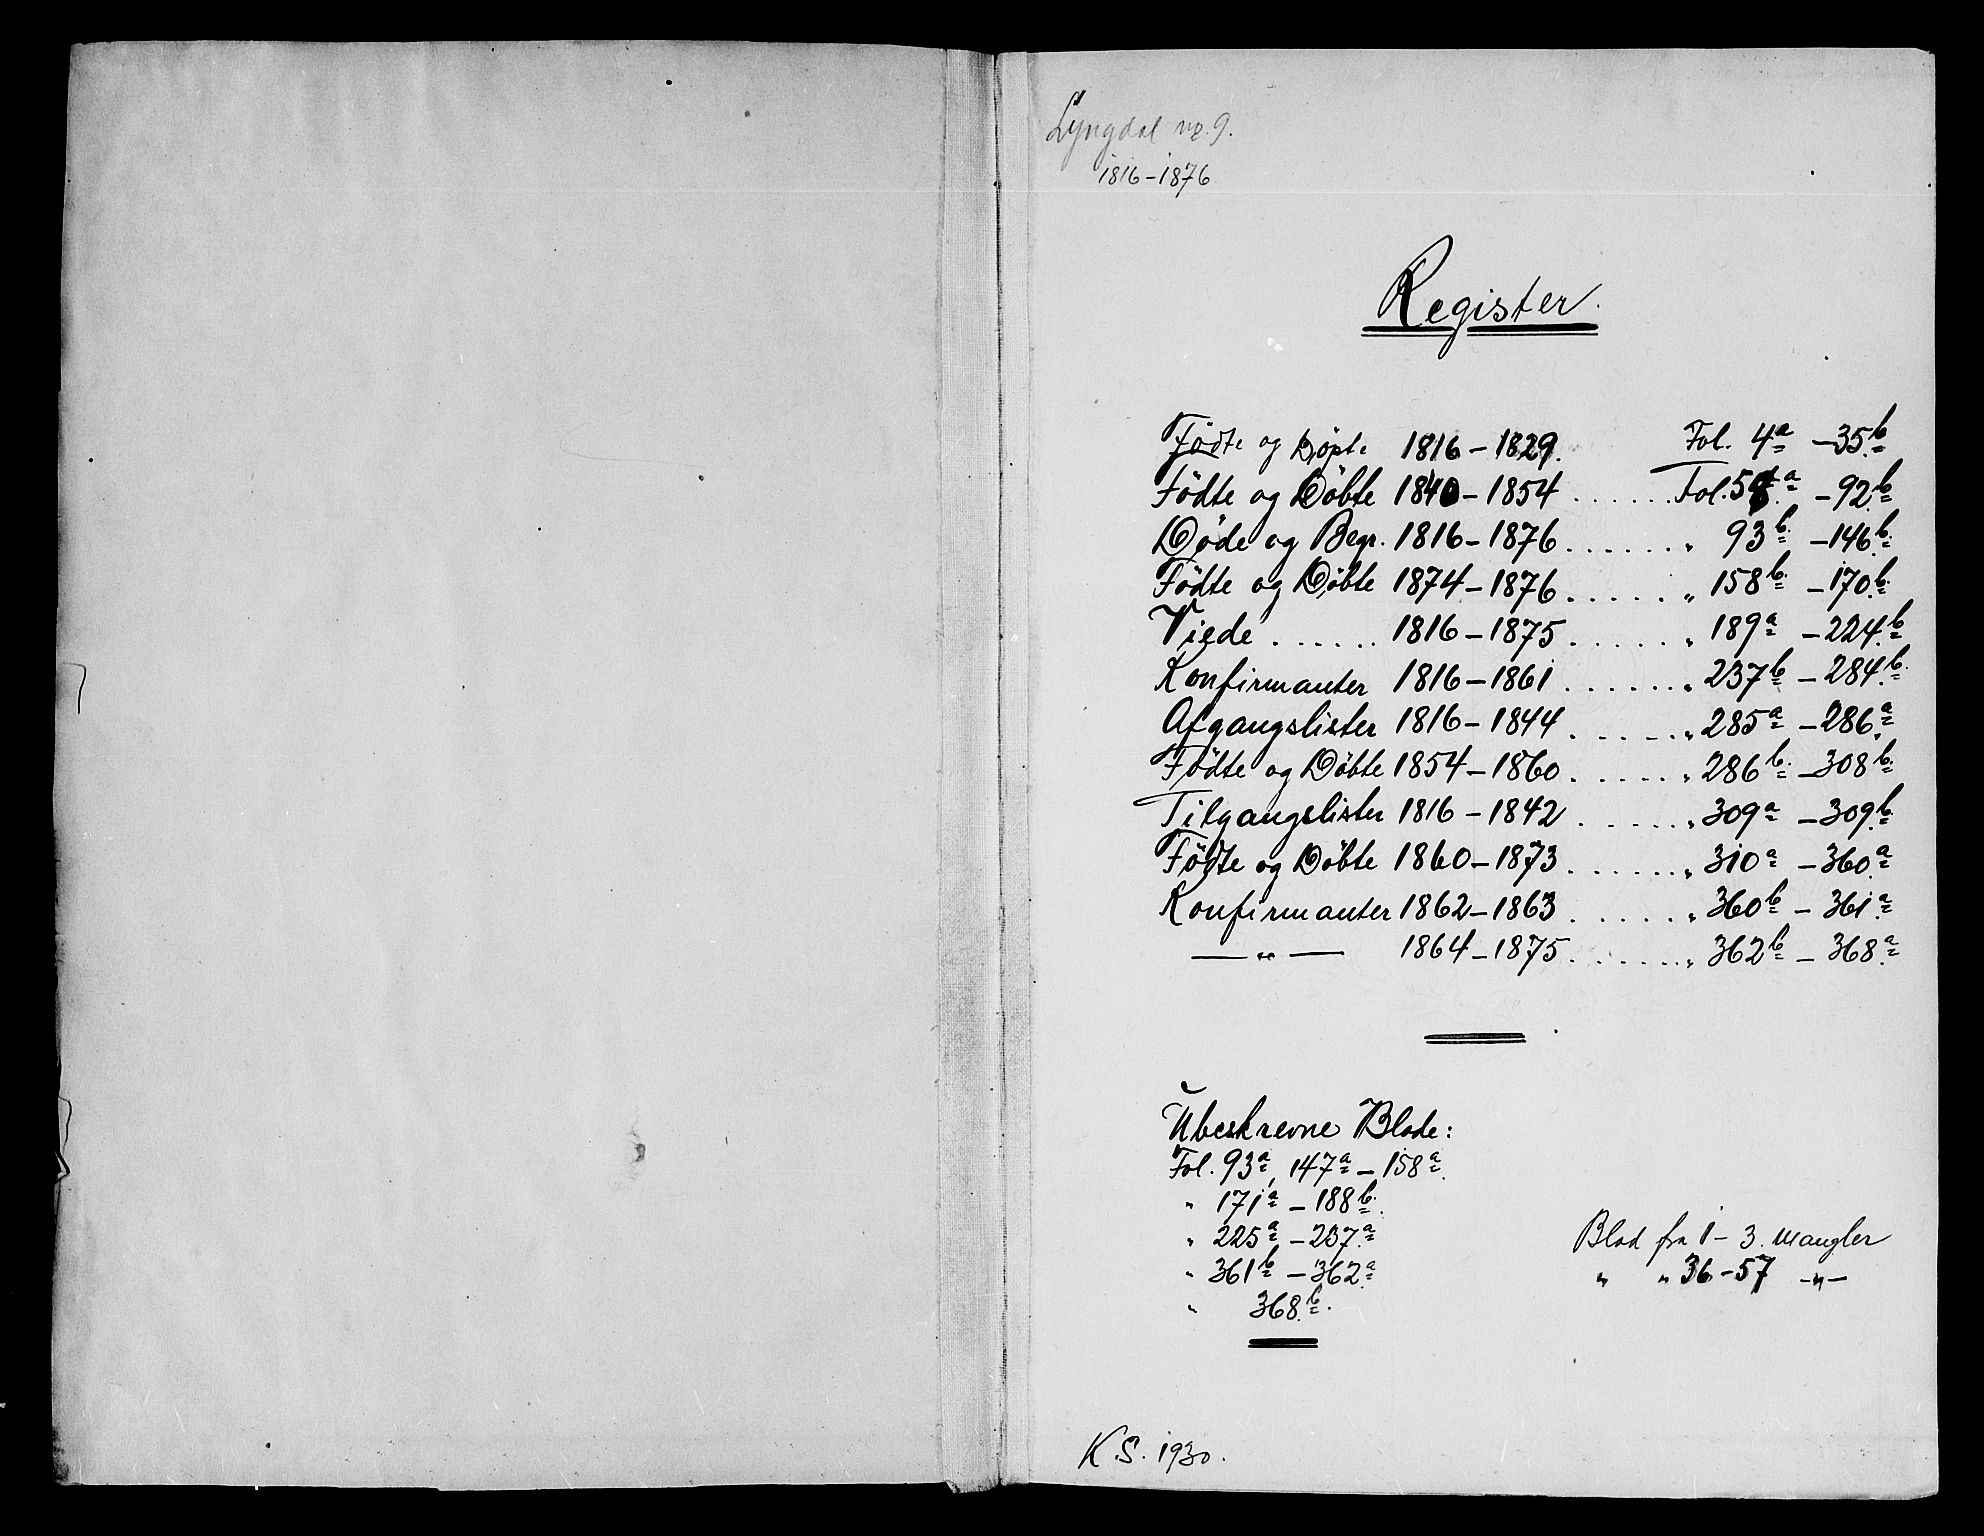 Lyngdal nr. 9.
1816-1876
Register.
Födte og Döpte 1816-1829. Fol. 4a -35b
Födte og Döbte 1840-1854 ...... Fol. a -92b
Døde og Begr. 1816-1876 ...... " 93b -146b
Födte og Döbte 1874-1876 ...... " 158b -170b
Viede ...... 1816-1875 ...... " 189a -224b
Konfirmanter 1816-1861 ...... " 237b -284b
Afgangslister 1816-1844 ...... " 285a -286a
Födte og Döbte 1854-1860 ...... " 286b -308b
Tilgangslister 1816-1842 ...... " 309a -309b
Födte og Döbte 1860-1873 ...... " 310a -360a
Konfirmanter 1862-1863 ...... " 360b - 361a
—"— 1864-1875 ...... " 362b - 368a
Ubeskrevne Blade:
Fol. 93a, 147a - 158a
" 171a - 188b
" 225a - 237a
" 361b - 362a
" 368b
Blad fra 1-3. mangler
" " 36-57 -"-
K.S. 1930.